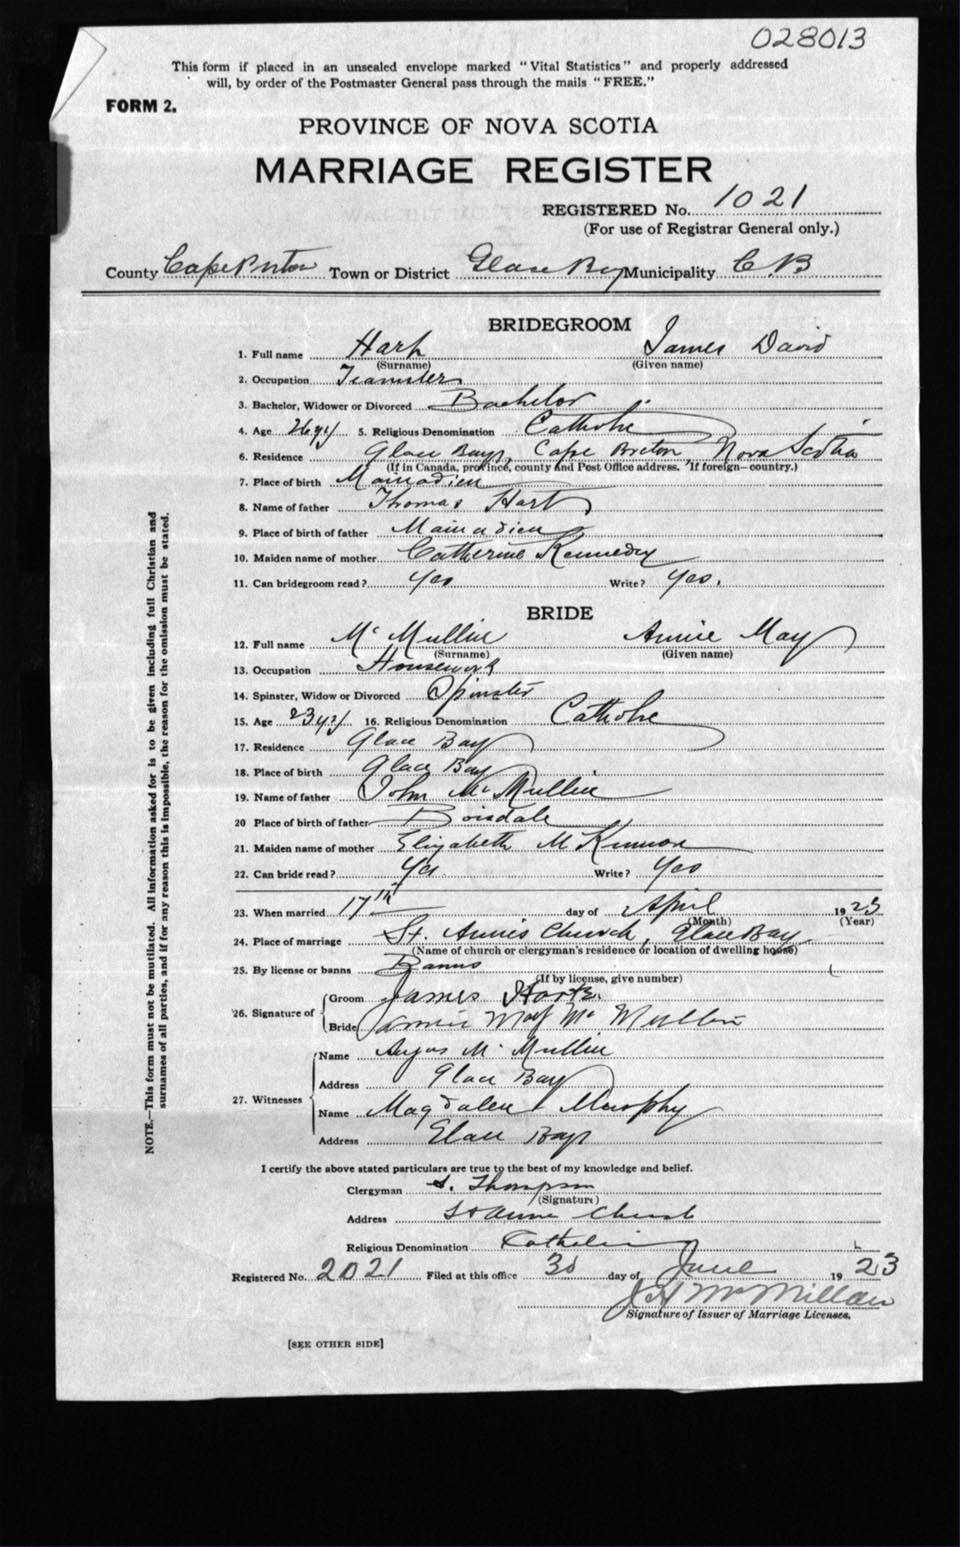 028013
This form if placed in an unsealed envelope marked "Vital Statistics" and properly addressed
will, by order of the Postmaster General pass through the mails "FREE."
FORM 2.
PROVINCE OF NOVA SCOTIA
MARRIAGE REGISTER
REGISTERED No. 1021
(For use of Registrar General only.)
County Cape Breton Town or District Glace Bay Municipality C.B
BRIDEGROOM
1. Full name Hart James David
(Surname) (Given name)
2. Occupation Teamster
3. Bachelor, Widower or Divorced Bachelor
4. Age 26 yrs 5. Religious Denomination Catholic
6. Residence Glace Bay, Cape Breton, Nova Scotia
(If in Canada, province, county and Post Office address. If foreign—country.)
7. Place of birth Mainadieu
8. Name of father Thomas Hart
9. Place of birth of father Mainadieu
10. Maiden name of mother Catherine Kennedy
11. Can bridegroom read? Yes Write? Yes.
BRIDE
12. Full name McMullin Annie May
(Surname) (Given name)
13. Occupation Housework
14. Spinster, Widow or Divorced Spinster
15. Age 23 yrs 16. Religious Denomination Catholic
17. Residence Glace Bay
18. Place of birth Glace Bay
19. Name of father John McMullin
20 Place of birth of father Boisdale
21. Maiden name of mother Elizabeth McKinnon
22. Can bride read? Yes Write? Yes
23. When married 17th day of April 1923
(Month) (Year)
24. Place of marriage St. Annes Church, Glace Bay.
(Name of church or clergyman's residence or location of dwelling house)
25. By license or banns Banns
(If by license, give number)
26. Signature of Groom James Hart
Bride Annie May McMullin
27. Witnesses
Name Angus McMullin
Address Glace Bay
Name Magdalen Murphy
Address Glace Bay
I certify the above stated particulars are true to the best of my knowledge and belief.
Clergyman Thompson
(Signature)
Address St Anne Church
Religious Denomination Catholic
Registered No. 2021 Filed at this office 30 day of June 1923
J H McMillan
Signature of Issuer of Marriage Licenses.
[SEE OTHER SIDE]
NOTE.—This form must not be mutilated. All information asked for is to be given including full Christian and
surnames of all parties, and if for any reason this is impossible, the reason for the omission must be stated.